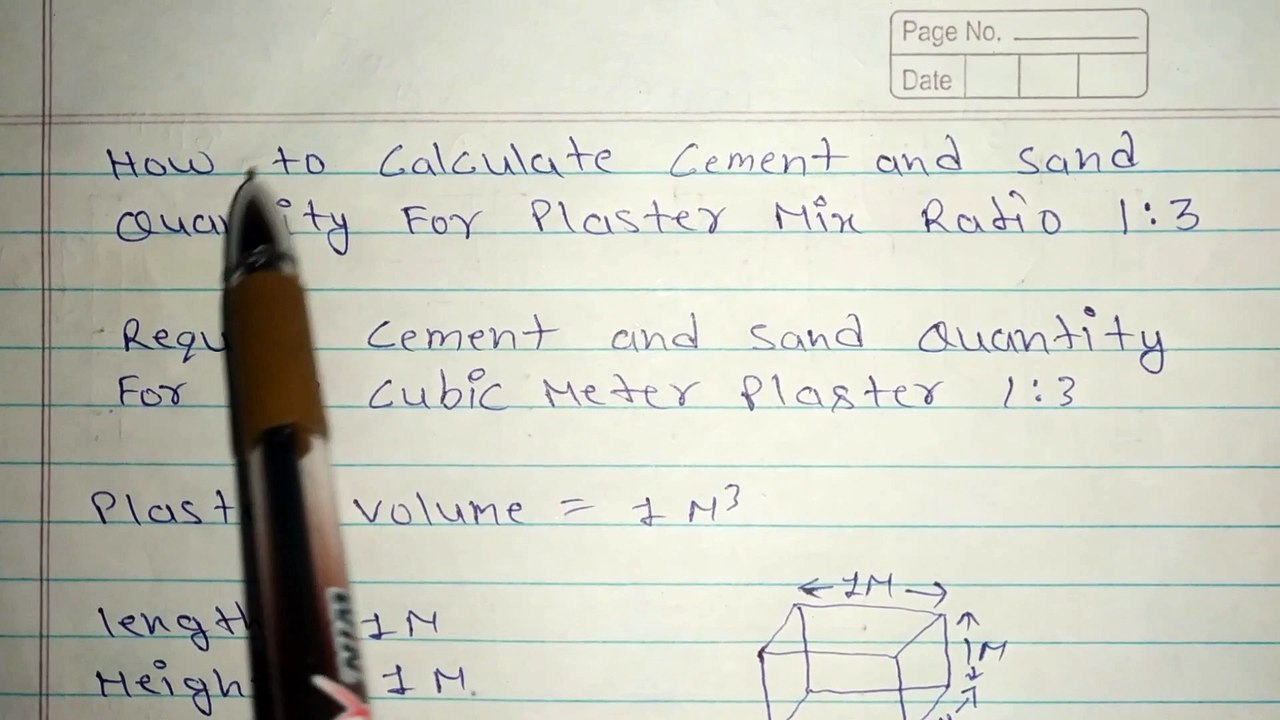 Page No.
Date
How to Calculate Cement and Sand
For Plaster Mix Ratio 1:3
Cement and Sand Quantity
For Cubic Meter Plaster 1:3
Volume = 1 M³
1M
length 1M
1M
1M